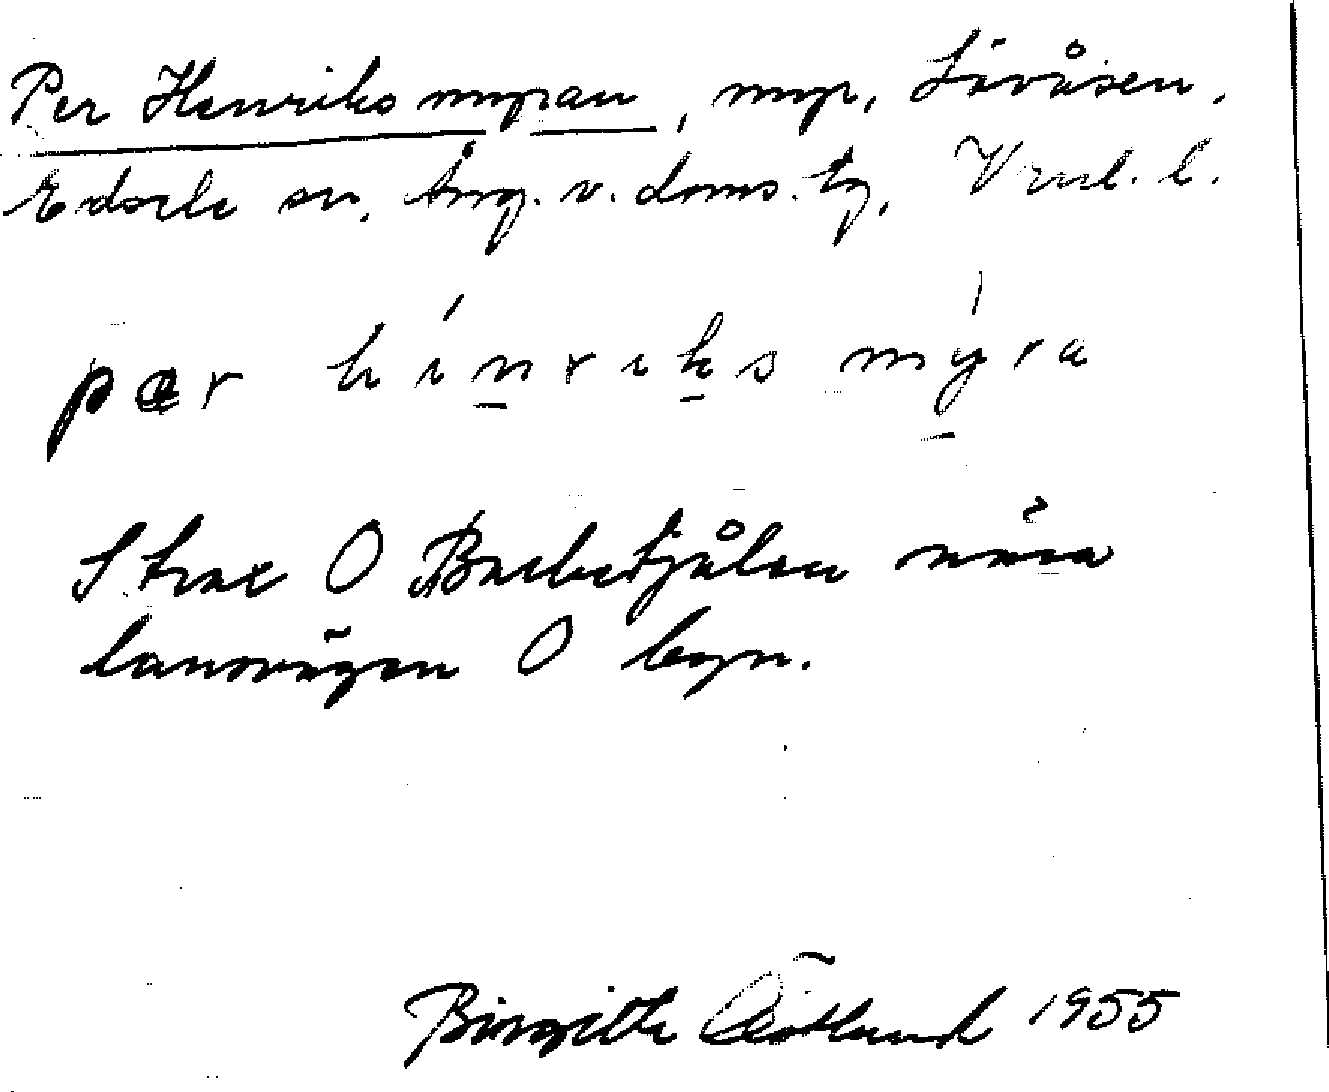 Per Henriksmyran, myr, Lövåsen,
Edsele sn, Ång. v. doms. tg, Vnrl. l.
pær hínriks mýra
Strax O Backetjålen nära
landvägen O byn.
Birgitta Östlund 1955